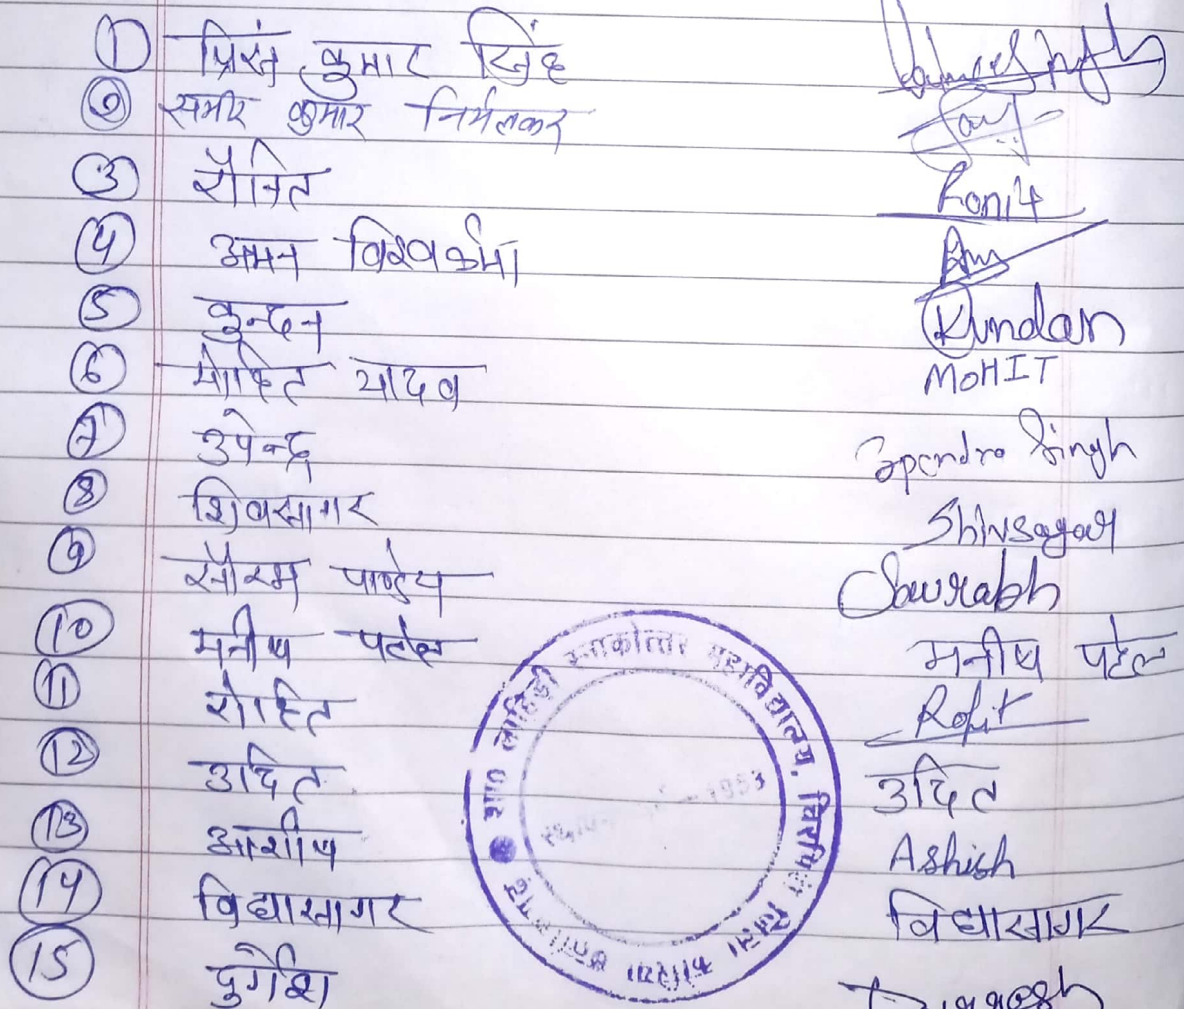 ① प्रिंस कुमार सिंह
② समीर कुमार निर्मलकर
③ रौनित Ronit
④ अमन विश्वकर्मा
⑤ कुन्दन Kundan
⑥ मोहित यादव MOHIT
⑦ उपेन्द्र Upendra Singh
⑧ शिवसागर Shivsagar
⑨ सौरभ पाण्डेय Saurabh
⑩ मनीष पटेल मनीष पटेल
⑪ रोहित Rohit
⑫ उदित उदित
⑬ आशीष Ashish
⑭ विद्यासागर विद्यासागर
⑮ दुर्गेश Durgesh
शास० लाहिड़ी स्नाकोत्तर महाविद्यालय, चिरमिरी जिला कोरिया
1983